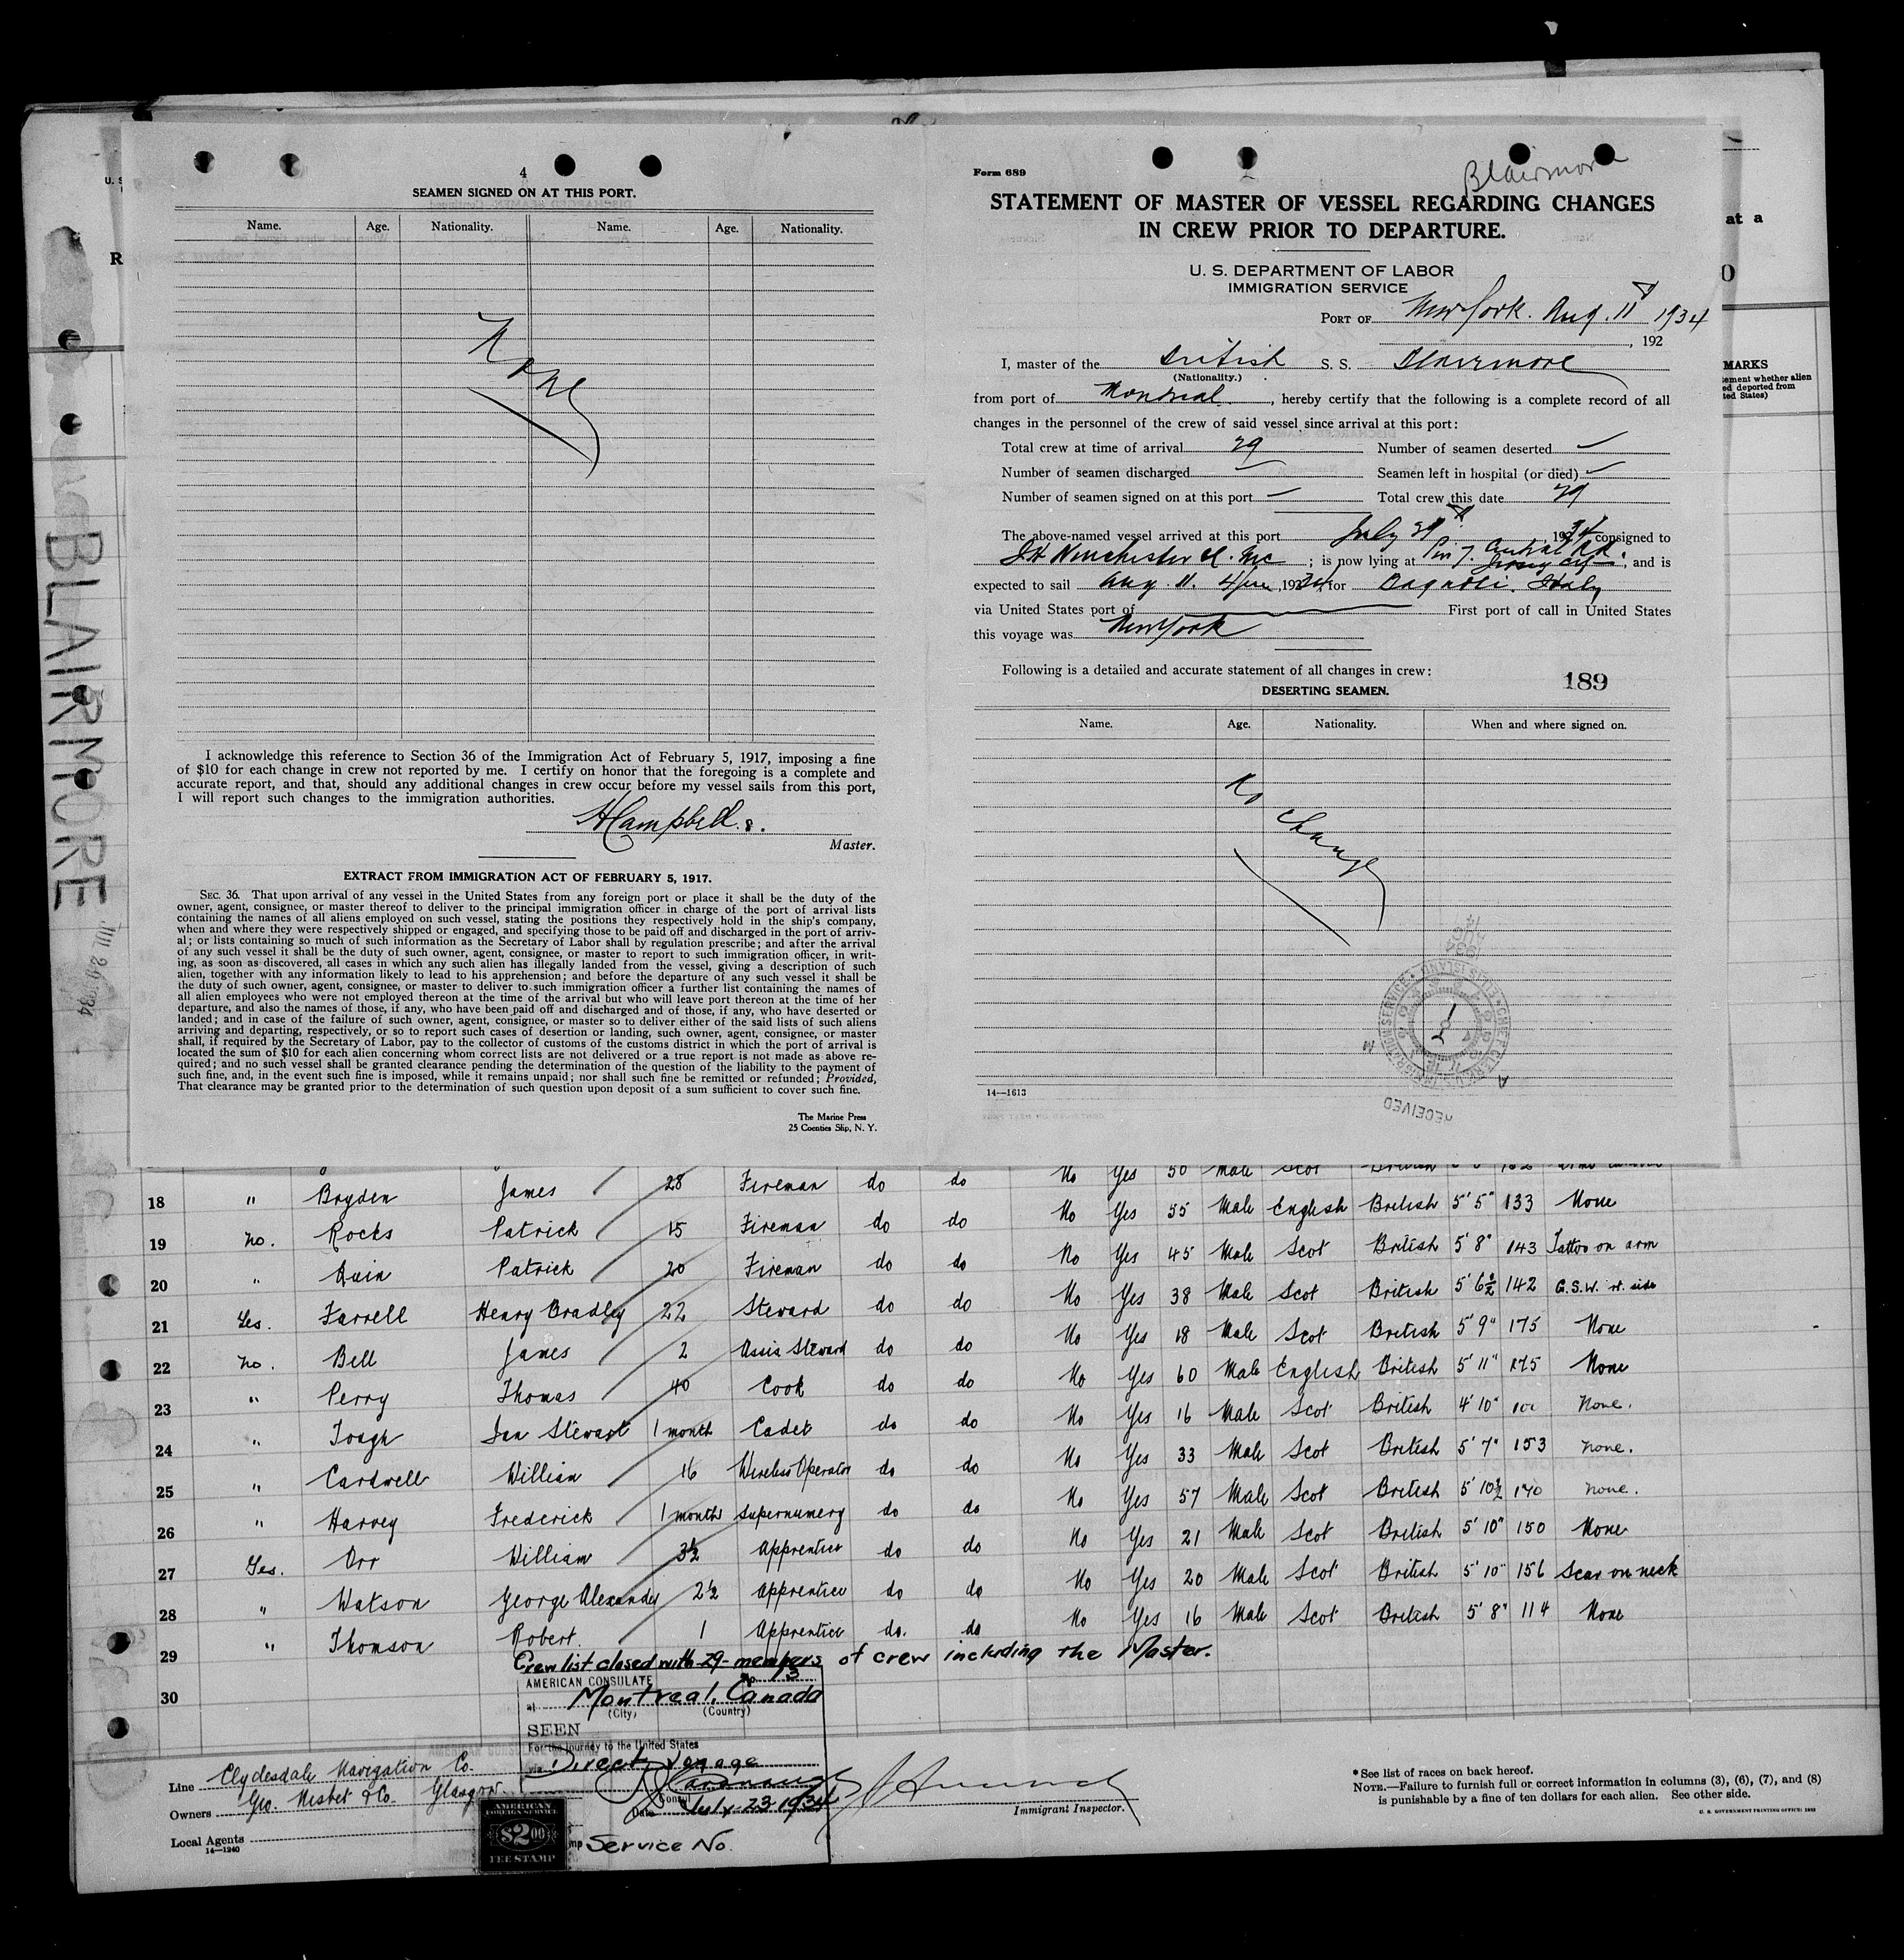 4
SEAMEN SIGNED ON AT THIS PORT.
Name. Age. Nationality. Name. Age. Nationality.
None
I acknowledge this reference to Section 36 of the Immigration Act of February 5, 1917, imposing a fine
of $10 for each change in crew not reported by me. I certify on honor that the foregoing is a complete and
accurate report, and that, should any additional changes in crew occur before my vessel sails from this port,
I will report such changes to the immigration authorities.
HCampbell.
Master.
EXTRACT FROM IMMIGRATION ACT OF FEBRUARY 5, 1917.
SEC. 36. That upon arrival of any vessel in the United States from any foreign port or place it shall be the duty of the
owner, agent, consignee, or master thereof to deliver to the principal immigration officer in charge of the port of arrival lists
containing the names of all aliens employed on such vessel, stating the positions they respectively hold in the ship's company,
when and where they were respectively shipped or engaged, and specifying those to be paid off and discharged in the port of arriv-
al; or lists containing so much of such information as the Secretary of Labor shall by regulation prescribe; and after the arrival
of any such vessel it shall be the duty of such owner, agent, consignee, or master to report to such immigration officer, in writ-
ing, as soon as discovered, all cases in which any such alien has illegally landed from the vessel, giving a description of such
alien, together with any information likely to lead to his apprehension; and before the departure of any such vessel it shall be
the duty of such owner, agent, consignee, or master to deliver to such immigration officer a further list containing the names of
all alien employees who were not employed thereon at the time of the arrival but who will leave port thereon at the time of her
departure, and also the names of those, if any, who have been paid off and discharged and of those, if any, who have deserted or
landed; and in case of the failure of such owner, agent, consignee, or master so to deliver either of the said lists of such aliens
arriving and departing, respectively, or so to report such cases of desertion or landing, such owner, agent, consignee, or master
shall, if required by the Secretary of Labor, pay to the collector of customs of the customs district in which the port of arrival is
located the sum of $10 for each alien concerning whom correct lists are not delivered or a true report is not made as above re-
quired; and no such vessel shall be granted clearance pending the determination of the question of the liability to the payment of
such fine, and, in the event such fine is imposed, while it remains unpaid; nor shall such fine be remitted or refunded; Provided,
That clearance may be granted prior to the determination of such question upon deposit of a sum sufficient to cover such fine.
The Marine Press
25 Coenties Slip, N. Y.
BLAIRMORE
JUL 29 1934
Form 689
Blairmore
STATEMENT OF MASTER OF VESSEL REGARDING CHANGES
IN CREW PRIOR TO DEPARTURE.
U. S. DEPARTMENT OF LABOR
IMMIGRATION SERVICE
PORT OF New York. Aug. 11 1934
, 192
I, master of the British S. S. Blairmore
(Nationality.)
from port of Montreal, hereby certify that the following is a complete record of all
changes in the personnel of the crew of said vessel since arrival at this port:
Total crew at time of arrival 29 Number of seamen deserted
Number of seamen discharged Seamen left in hospital (or died)
Number of seamen signed on at this port Total crew this date 29
The above-named vessel arrived at this port July 29 1934 consigned to
JH Winchester & Inc; is now lying at Pier 7. Central RR. Jersey City, and is
expected to sail Aug. 11. 4pm, 1934 for Bagnoli. Italy
via United States port of First port of call in United States
this voyage was New York
Following is a detailed and accurate statement of all changes in crew:
189
DESERTING SEAMEN.
Name. Age. Nationality. When and where signed on.
No change
CHIEF CLERK U.S. IMMIGRATION SERVICE ELLIS ISLAND
RECEIVED
14—1613
at a
MARKS
18 " Bryden James 28 Fireman do do No Yes 50 Male Scot British
19 no. Rocks Patrick 15 Fireman do do No Yes 55 Male English British 5' 5" 133 None
20 " Quin Patrick 20 Fireman do do No Yes 45 Male Scot British 5' 8" 143 Tattoo on arm
21 Yes. Farrell Henry Bradley 22 Steward do do No Yes 38 Male Scot British 5' 6½ 142 G.S.W. rt. side
22 no. Bell James 2 Assis Steward do do No Yes 18 Male Scot British 5' 9" 175 None
23 " Perry Thomas 40 Cook do do No Yes 60 Male English British 5' 11" 175 None
24 " Tough Ian Stewart 1 month Cadet do do No Yes 16 Male Scot British 4' 10" 100 None.
25 " Cardwell William 16 Wireless Operator do do No Yes 33 Male Scot British 5' 7" 153 none.
26 " Harvey Frederick 1 month Supernumery do do No Yes 57 Male Scot British 5' 10½ 170 none.
27 Yes. Orr William 3½ Apprentice do do No Yes 21 Male Scot British 5' 10" 150 None
28 " Watson George Alexander 2½ Apprentice do do No Yes 20 Male Scot British 5' 10" 156 Scar on neck
29 " Thomson Robert. 1 Apprentice do. do No Yes 16 Male Scot British 5' 8" 114 None
Crew list closed with -29- members of crew including the Master.
30
AMERICAN CONSULATE
at Montreal, Canada
(City) (Country)
SEEN
For the journey to the United States
via Direct Voyage
Consul
Date July 23 1934
Service No.
AMERICAN
FOREIGN SERVICE
$2.00
FEE STAMP
Line Clydesdale Navigation Co.
Owners Geo. Nisbet & Co. Glasgow.
Local Agents
14—1240
Immigrant Inspector.
*See list of races on back hereof.
NOTE.—Failure to furnish full or correct information in columns (3), (6), (7), and (8)
is punishable by a fine of ten dollars for each alien. See other side.
U. S. GOVERNMENT PRINTING OFFICE: 1932